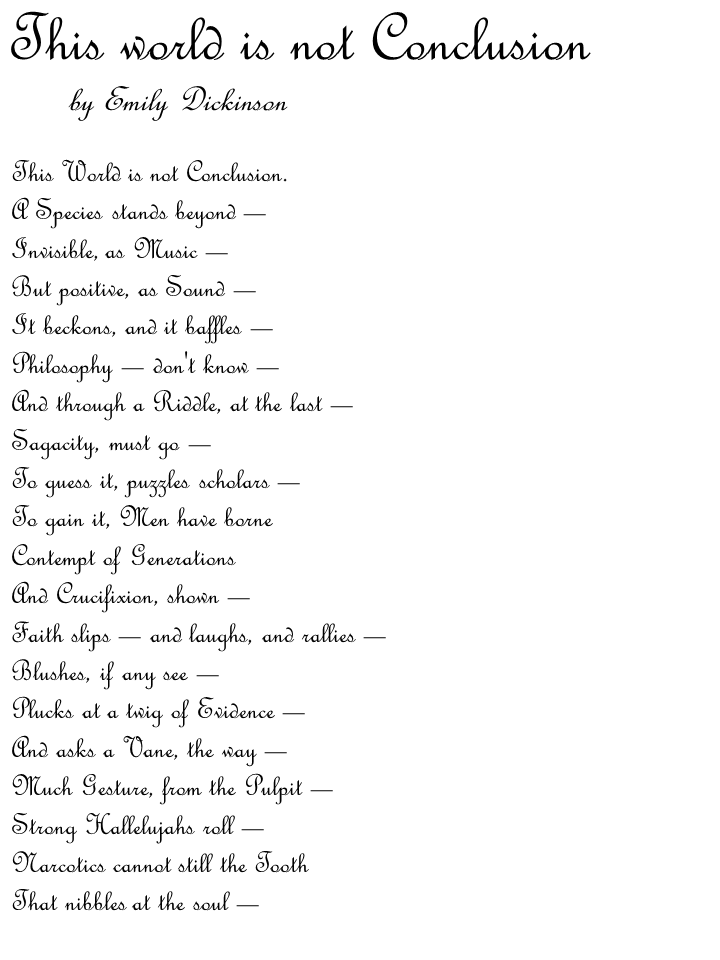 This world is not Conclusion
by Emily Dickinson
This World is not Conclusion.
A Species stands beyond —
Invisible, as Music —
But positive, as Sound —
It beckons, and it baffles —
Philosophy — don't know —
And through a Riddle, at the last —
Sagacity, must go —
To guess it, puzzles scholars —
To gain it, Men have borne
Contempt of Generations
And Crucifixion, shown —
Faith slips — and laughs, and rallies —
Blushes, if any see —
Plucks at a twig of Evidence —
And asks a Vane, the way —
Much Gesture, from the Pulpit —
Strong Hallelujahs roll —
Narcotics cannot still the Tooth
That nibbles at the soul —